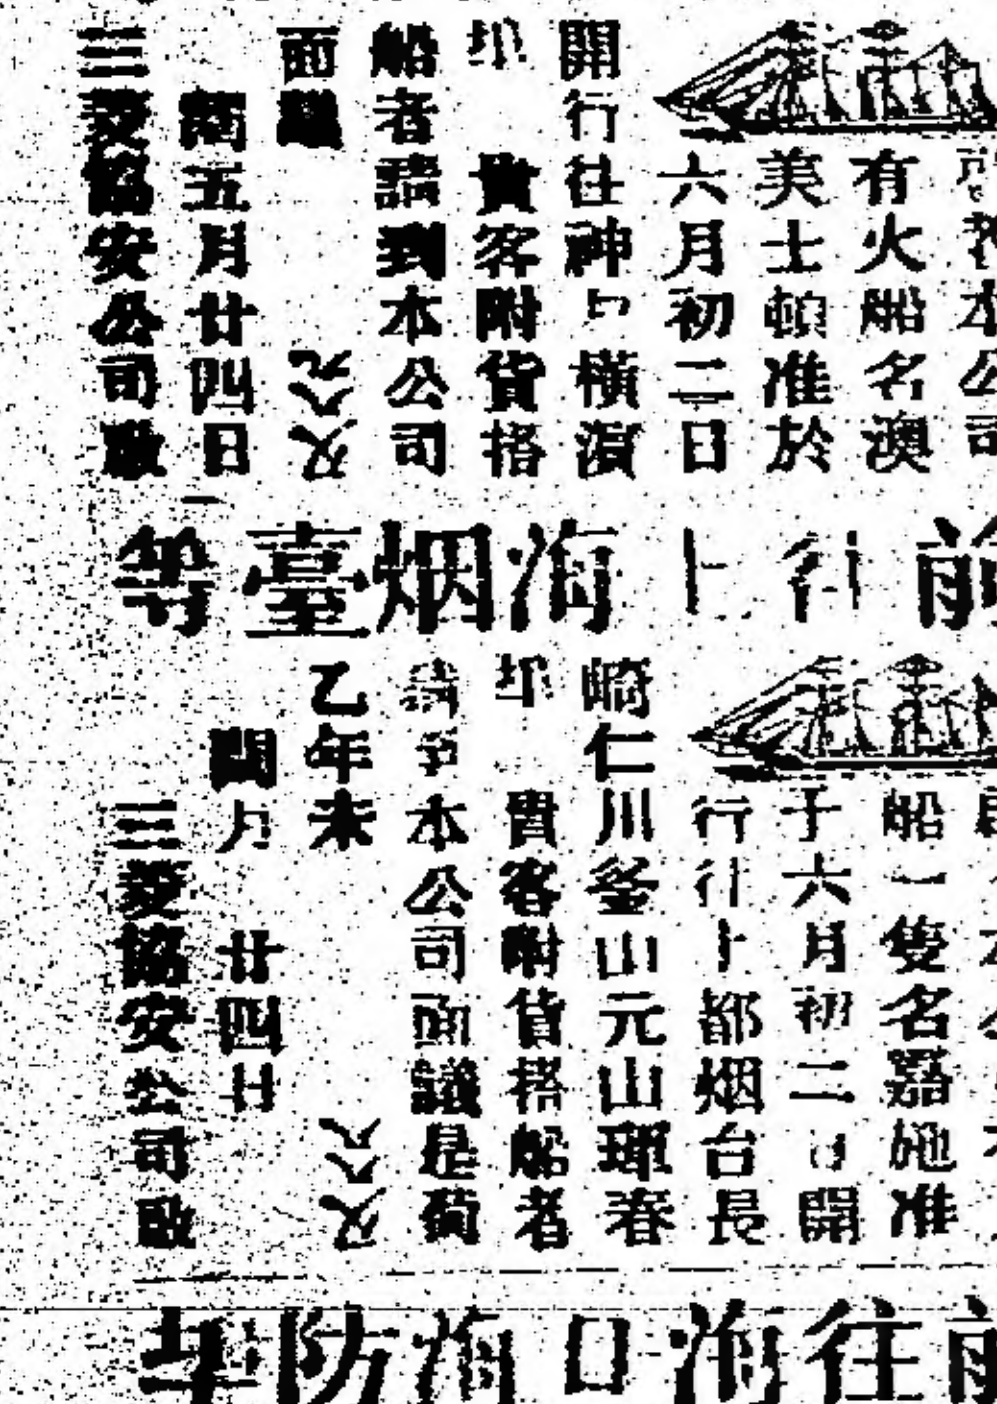 本公司
有火船名澳
美士頓准於
六月初二日
開行往神戶橫濱
貴客附貨搭
船者請到本公司
面
閏五月廿四日
三菱協安公司啟
前往上海烟臺等
船一隻名嘉施准
于六月初二日開
行往上都烟台長
崎仁川釜山元山琿春
如貴客附貨搭船者
請予本公司面議是荷
乙年未
閏月廿四廿
三菱協安公司啟
前往海口海防等